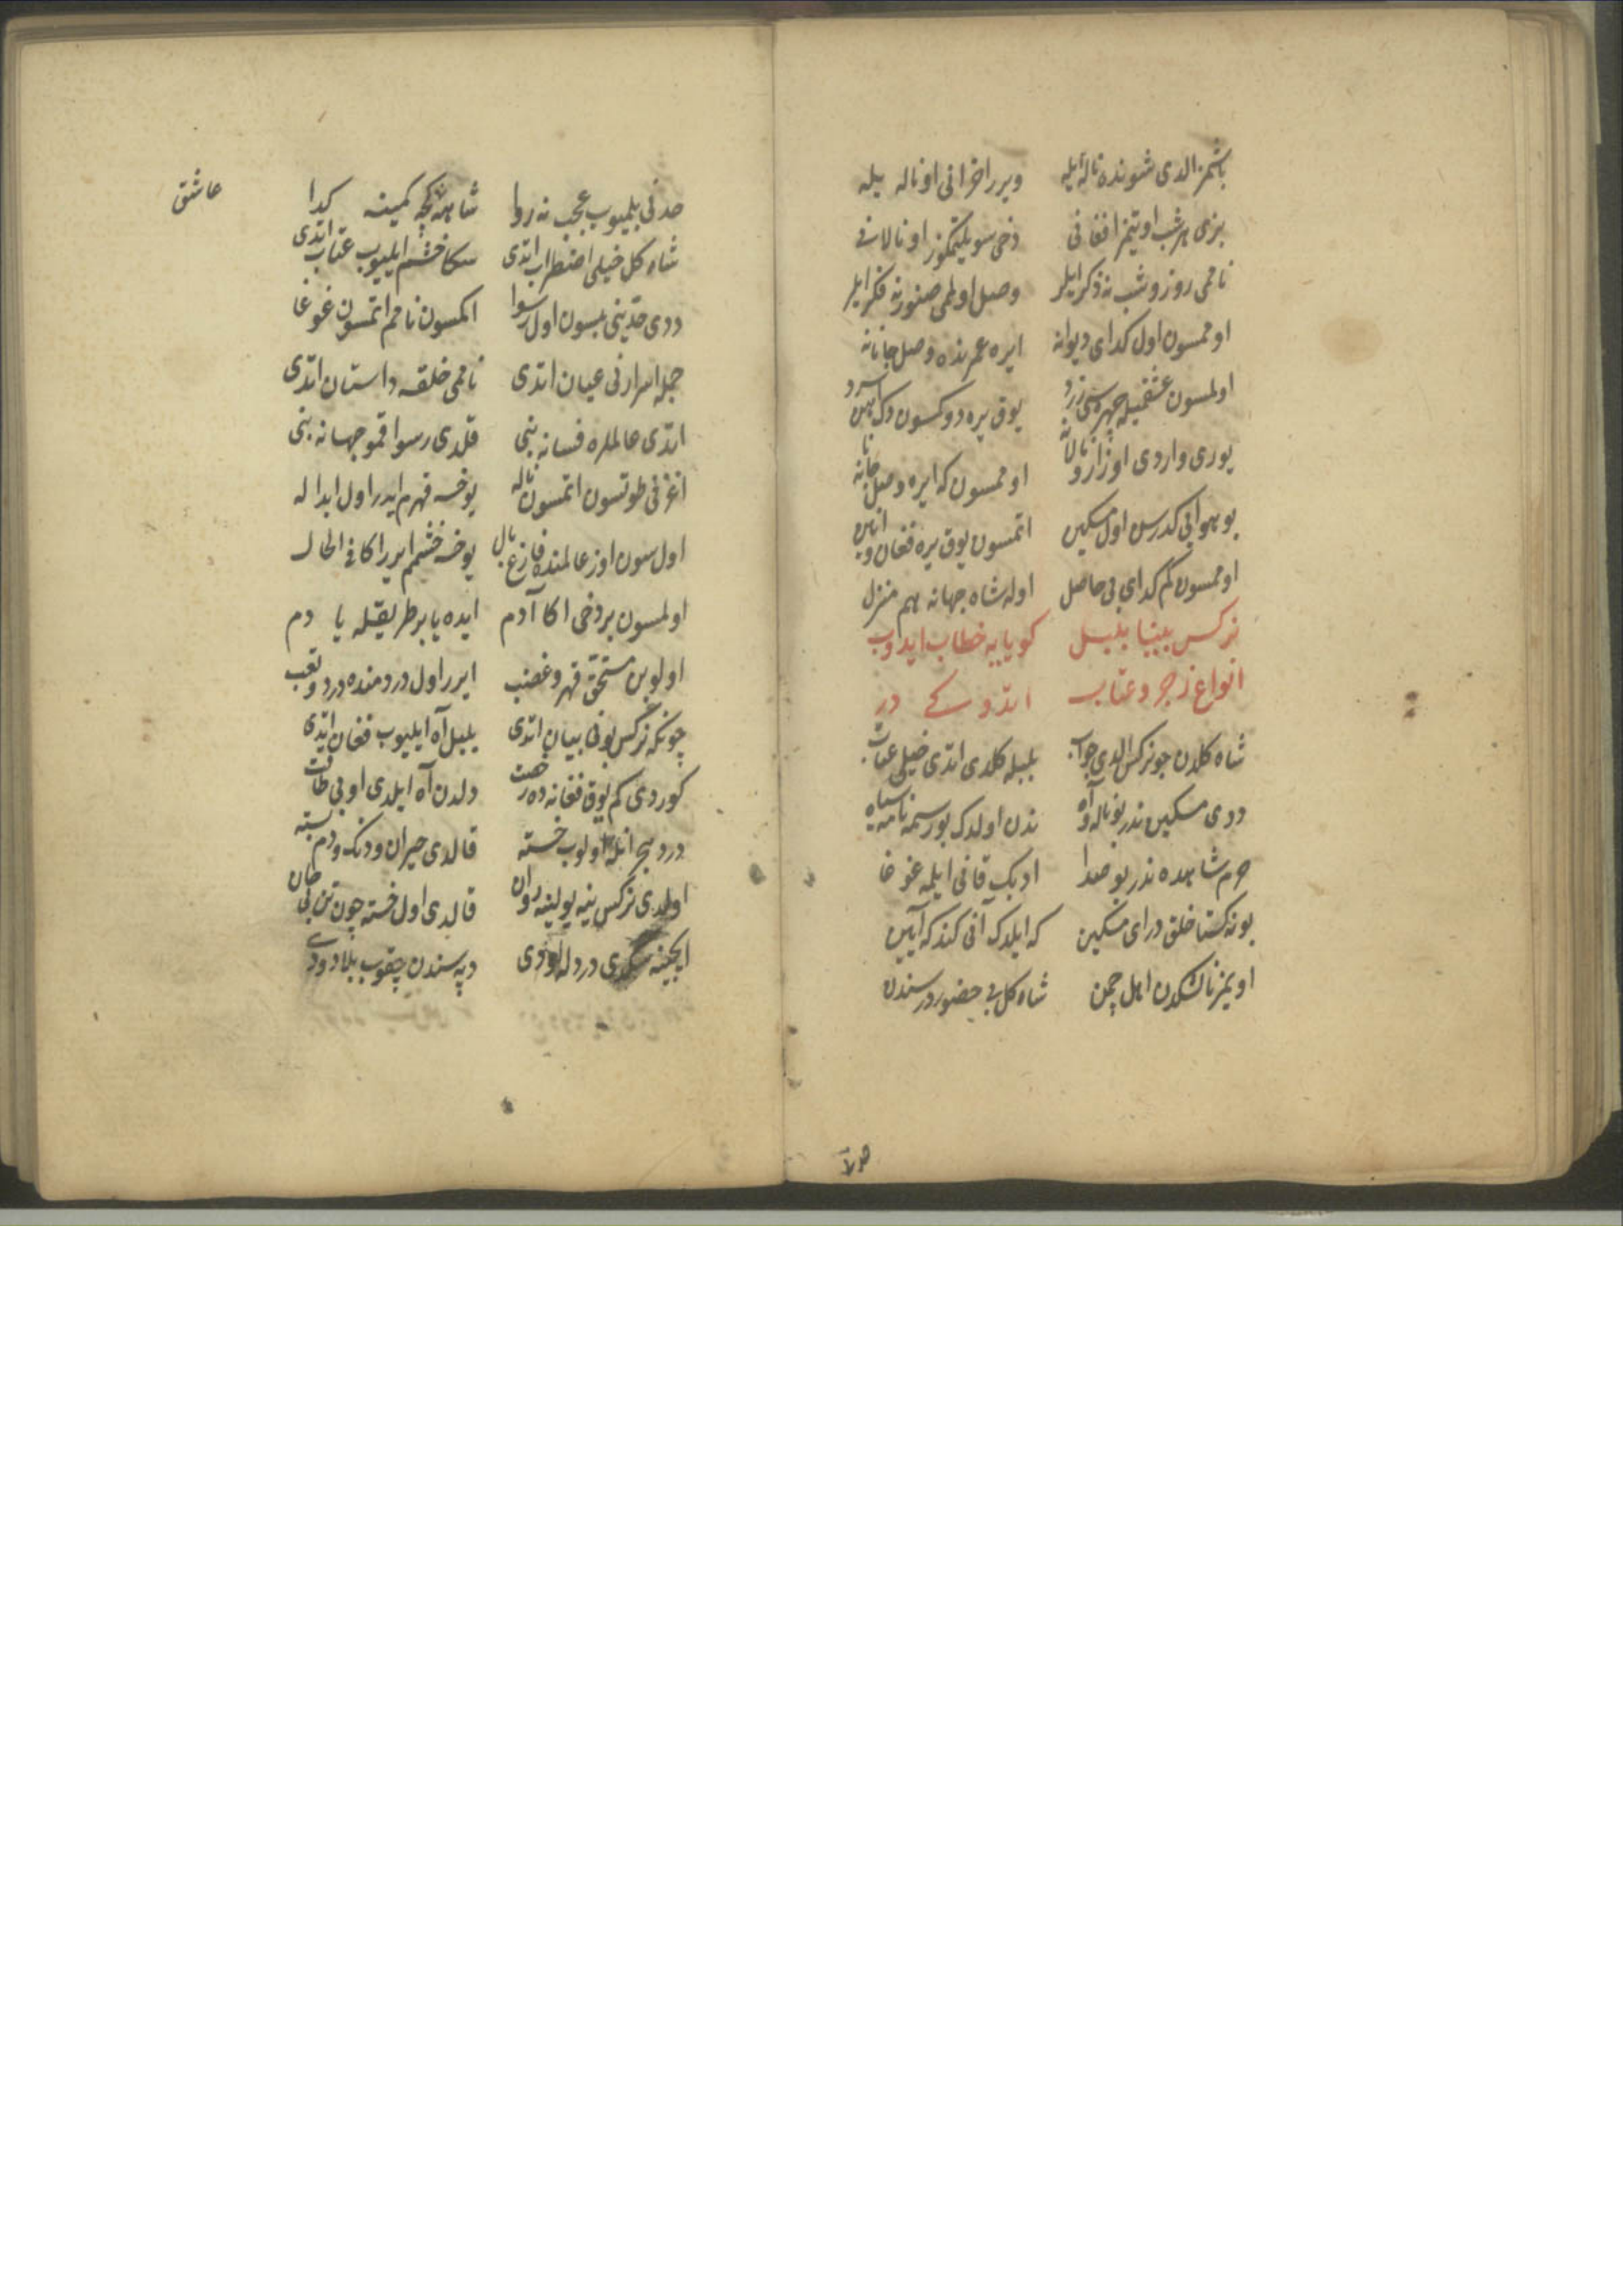 باشمز الدی شونده ناله ایله ویرر اخر انی او ناله یله
بزی هر شب اویتمز افغانی دخی سویلیتمکوز او نالانی
نامی روز و شب نه ذکر ایلر وصل اولمی صنور نه فکر ایلر
اوممسون اول کدای دیوانه ایره عمرنده وصل جانانه
اولمسون عشقمیله چهره سی زرد یوق یره دوکسون دک آهن سرد
یوری واردی اوزار و نالانه اوممسون که ایره وصل جانانه
بو هوایی کدرس اول مسکین اتمسون یوق یره فغان و انین
اوممسون کم کدای بی حاصل اوله شاه جهانه هم منزل
نرکس بینا بلبل کویایه خطاب ایدوب
انواع زجر و عتاب اتدوکی در
شاه کلدن چو نرکس الدی جواب بلبله کلدی اتدی خیلی عتاب
ددی مسکین ندر بو ناله و آه ندن اولدک بو رسمه نامه سیاه
حرم شاهده ندر بو صدا ادبک قانی ایلمه غوغا
بو نه کستاخلق در ای مسکین که ایلدک آنی کندکه آیین
اویمز ناله کدن اهل چمن شاه کل بی حضوردر سندن
حدنی بلمیوب عجب نه روا شاهه کچه کمینه کدا
شاه کل خیلی اضطراب اتدی سکا خشم ایلیوب عتاب اتدی
ددی حدینی بلسون اول رسوا اکمسون نامم اتمسون غوغا
جمله اسرارنی عیان اتدی نامی خلقه داستان اتدی
اتدی عالملره فسانه بنی قلدی رسوا قمو جهانه بنی
اغزنی طوتسون اتمسون ناله یوخسه قهرم ایدر اول ابداله
اول سون اوز عالمنده فارغ بال یوخسه خشمم ایرر اکا فی الحال
اولمسون بردخی اکا آدم ایده یا بر طریقله یا دم
اولوبن مستحق قهر و غضب ایرر اول دردمنده درد و تعب
چونکه نرکس بونی بیان اتدی بلبل آه ایلیوب فغان اتدی
کوردی کم یوق فغانه ده رخصت دلدن آه ایلدی او بی طاقت
درد هجرانله اولوب خسته قالدی حیران و دنک و دم بسته
اولدی نرکس ینه یولینه روان قالدی اول خسته چون تن بی جان
ایچینه سکدی درد دله دودی دپه سندن چقوب بلا دودی
عاشق